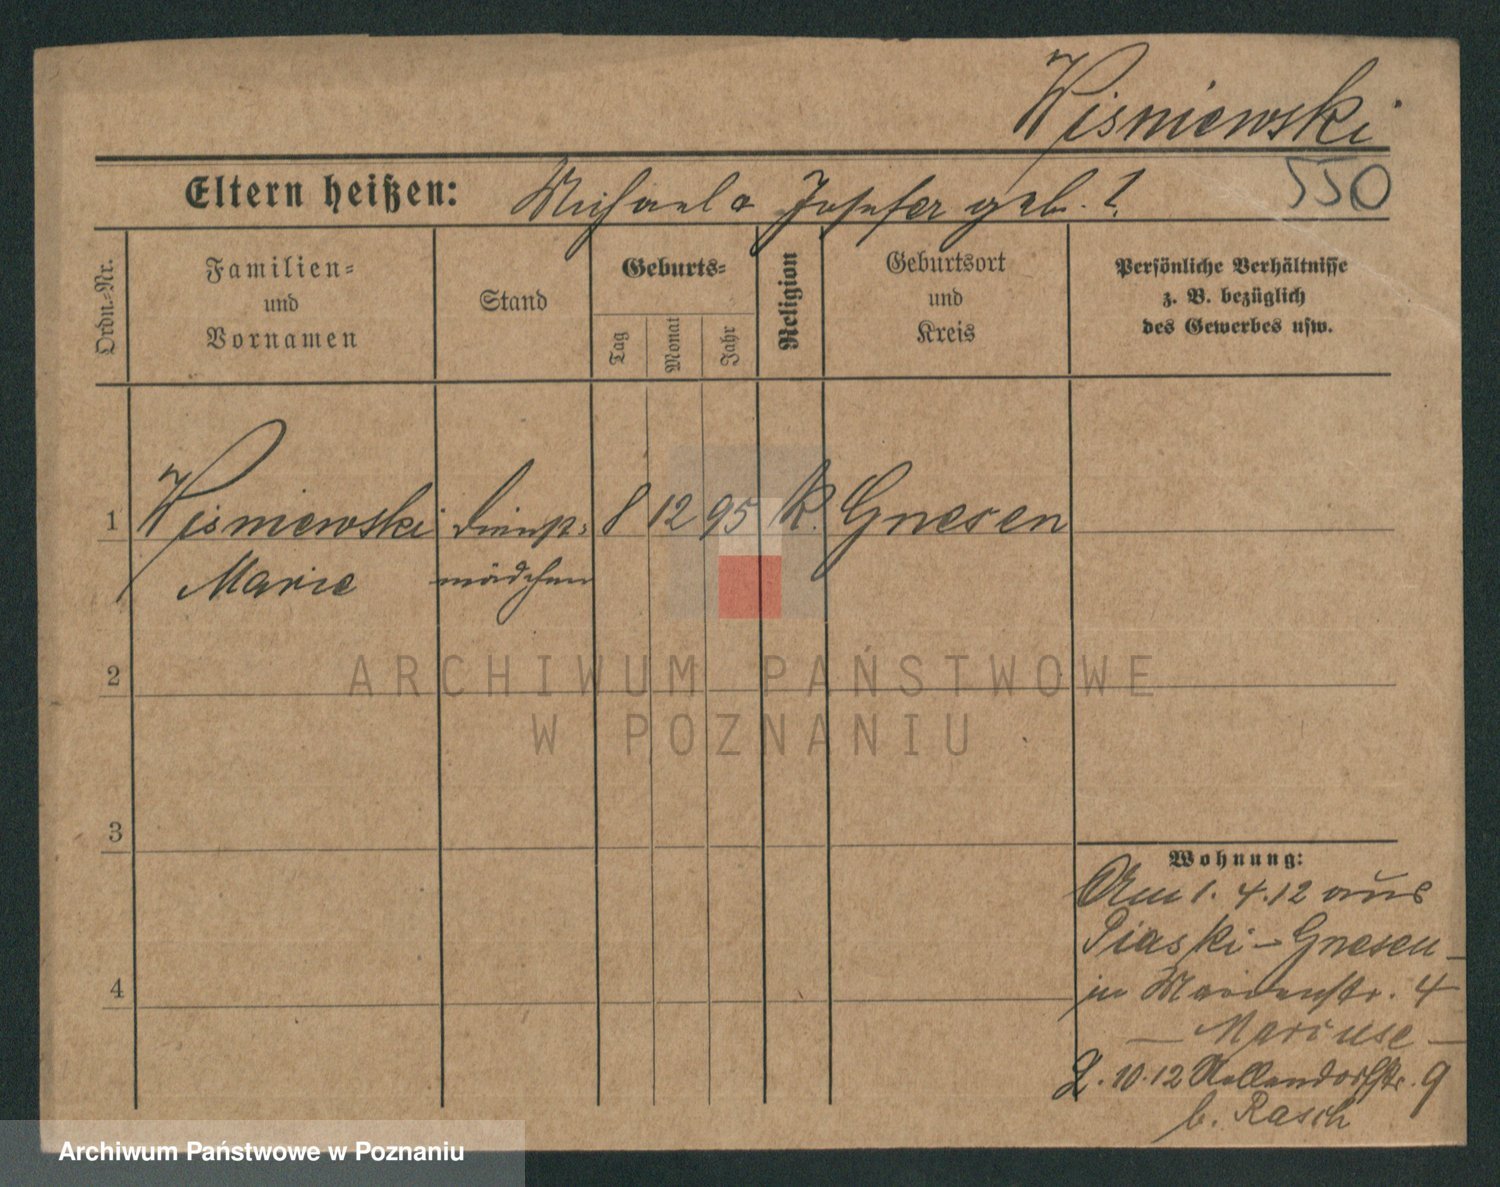 Wisniewski
Eltern heißen: Michael u Josefa geb. ?
550
Ordn.-Nr.
Familien-
und
Vornamen
Stand
Geburts-
Tag
Monat
Jahr
Religion
Geburtsort
und
Kreis
Persönliche Verhältnisse
z. B. bezüglich
des Gewerbes usw.
1 Wisniewski Dienst- 8 12 95 K. Gnesen
Marie mädchen
2
3
4
Wohnung:
Am 1. 4. 12 aus
Piaski-Gnesen
in Marienstr. 4
2. 10. 12 9
b. Rasch
ARCHIWUM PAŃSTWOWE
W POZNANIU
Archiwum Państwowe w Poznaniu